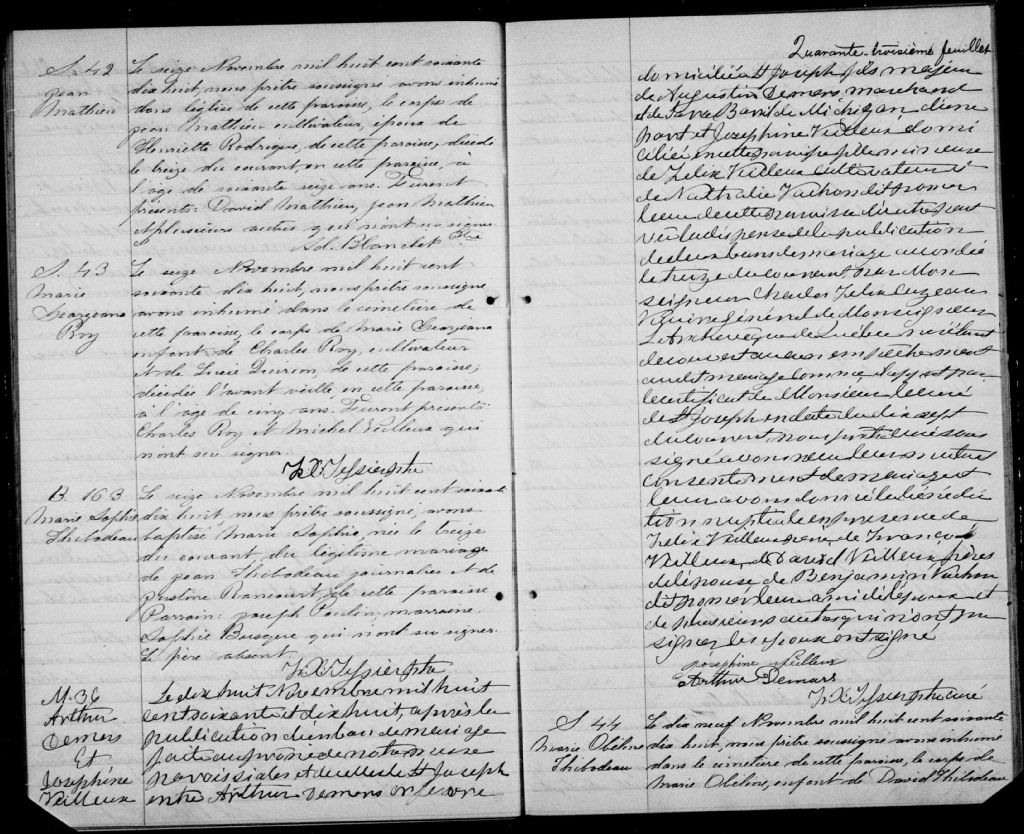 S. 42
Jean
Mathieu
Le seize Novembre mil huit cent soixante
dix huit, nous prêtre soussigné avons inhumé
dans l'église de cette paroisse, le corps de
Jean Mathieu cultivateur, époux de
Henriette Rodrigue, de cette paroisse, décédé
le treize du courant, en cette paroisse, à
l'age de soixante seize ans. Furent
présents: David Mathieu, Jean Mathieu
& plusieurs autres qui n'ont su signer.
Ad. Blanchet Ptre
S. 43
Marie
Georgeana
Roy
Le seize Novembre mil huit cent
soixante dix huit, nous prêtre soussigné
avons inhumé dans le cimetière de
cette paroisse, le corps de Marie Georgeana
enfant de Charles Roy, cultivateur
& de Lucie Quirion, de cette paroisse,
décédée l'avant veille, en cette paroisse,
à l'age de cinq ans. Furent présents:
Charles Roy & Michel Veilleux qui
n'ont su signer.
F. X. Tessier ptre
B. 163
Marie Sophie
Thibodeau
Le seize Novembre mil huit cent soixante
dix huit, nous prêtre soussigné, avons
baptisé Marie Sophie, née le treize
du courant du légitime mariage
de Jean Thibodeau journalier et de
Justine Rancourt, de cette paroisse.
Parrain: Joseph Poulin, marraine:
Sophie Busque qui n'ont su signer.
Le père absent.
F. X. Tessier ptre
M. 36
Arthur
Demers
Et
Joséphine
Veilleux
Le dix huit Novembre mil huit
cent soixante et dix huit, après la
publication d'un ban de mariage
faite au prône de notre messe
paroissiales et de celle de St Joseph
entre Arthur Demers orfèvre
Quarante-troisième feuillet
domicilié à St Joseph fils majeur
de Augustin Demers, marchand
et de Baril de Michigan, d'une
part et Joséphine Veilleux domi
ciliée en cette paroisse fille mineure
de Félix Veilleux Cultivateur &
de Nathalie Vachon dit pomer
leau de cette paroisse d'autre part
vu la dispense de la publication
de deux bans de mariage accordée
le treize du courant par Mon
seigneur Charles Félix Cazeau
Vicaire général de Monseigneur
L'Archevêque de Québec ne s'étant
découvert aucun empêchement
au dit mariage comme il appert par
le certificat de Monsieur le curé
de St Joseph en date du dix sept
du courant, nous prêtre curé sous
signé avons reçu leur mutuel
consentement de mariage et
leur avons donné la bénédic
tion nuptiale en présence de
Félix Veilleux père, de François
Veilleux, de David Veilleux frères
de l'épouse de Benjamin Vachon
dit pomerleau ami de l'époux et
de plusieurs autres qui n'ont su
signer les époux ont signé
Josephine Veilleux
Arthur Demers
F. X. Tessier ptre curé
S. 44
Marie Obéline
Thibodeau
Le dix neuf Novembre mil huit cent soixante
dix huit, nous prêtre soussigné avons inhumé
dans le cimetière de cette paroisse, le corps de
Marie Obéline, enfant de David Thibodeau